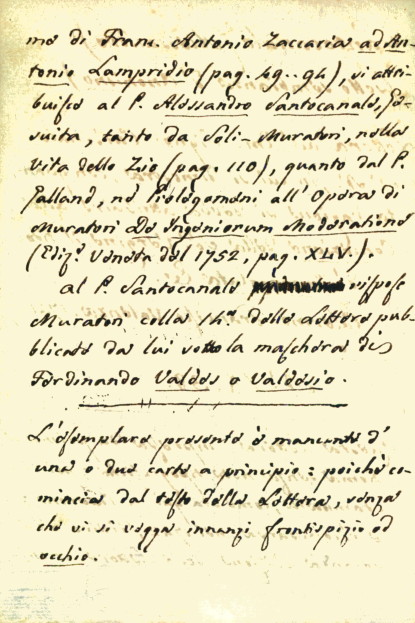 me di Fran. Antonio Zaccaria ad An-
tonio Lampridio (pag. 49..94), si attri-
buisce al P. Alessandro Santocanale, Ge-
suita, tanto da Soli-Muratori, nella
Vita dello Zio (pag. 110), quanto dal P.
Galland, ne' Prologomeni all' Opera di
Muratori De Ingeniorum Moderatione
(Ediz.e Veneta del 1752, pag. XLV.).
Al P. Santocanale rispose
Muratori colla 14.a delle Lettere pub-
blicate da lui sotto la maschera di
Ferdinando Valdes o Valdesio.
L'esemplare presente è mancante d'
una o due carte a principio: poichè co-
mincia dal testo della Lettera, senza
che vi si vegga innanzi frontispizio od
occhio.